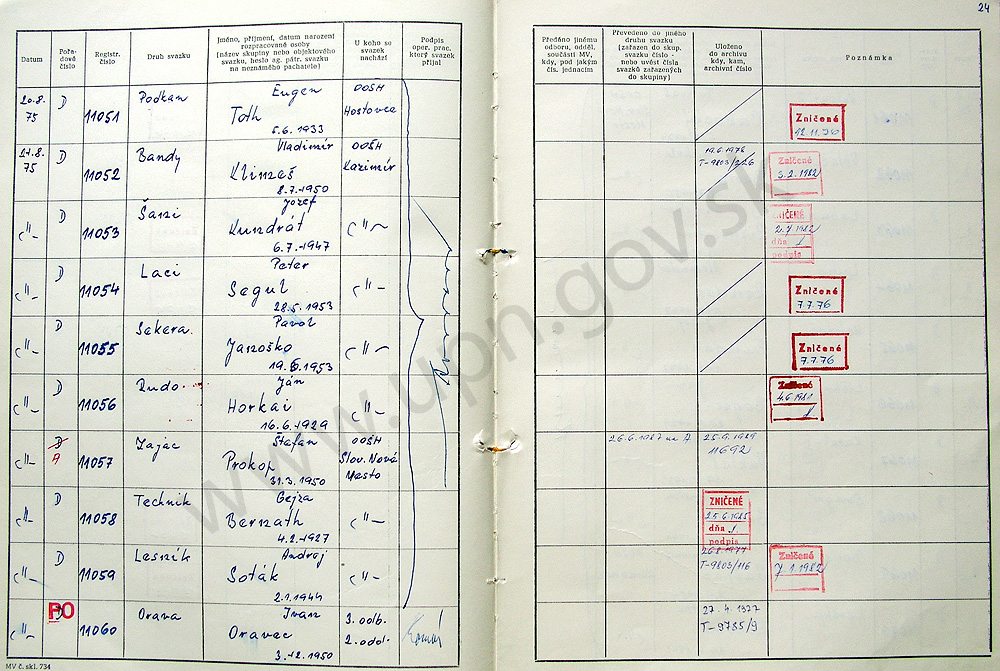 24
Datum
Pořadové číslo
Registr. číslo
Druh svazku
Jméno, příjmení, datum narození rozpracované osoby (název skupiny nebo objektového svazku, heslo ag. pátr. svazku na neznámého pachatele)
U koho se svazek nachází
Podpis oper. prac. který svazek přijal
Předáno jinému odboru, odděl. součásti MV, kdy, pod jakým čís. jednacím
Převedeno do jiného druhu svazku (zařazen do skup. svazku číslo - nebo uvést čísla svazků zařazených do skupiny)
Uloženo do archivu kdy, kam, archivní číslo
Poznámka
20.8. 75 D 11051 Podkan Eugen Toth 5.6.1933 OOSH Hostovce
Zničené 12.11.76
21.8. 75 D 11052 Bandy Vladimír Klimaš 8.7.1950 OOSH Kazimír
19.6.1976 T-9803/226
Zničené 3.2.1982
-"- D 11053 Šani Jozef Kundrát 6.7.1947 -"-
ZNIČENÉ 2.7.1982 dňa podpis
-"- D 11054 Laci Peter Segul 28.5.1953 -"-
Zničené 7.7.76
-"- D 11055 Sekera Pavol Janoško 19.6.1953 -"-
Zničené 7.7.76
-"- D 11056 Rudo Ján Horkai 16.6.1929 -"-
Zničené 4.6.1981
-"- D A 11057 Zajac Štefan Prokop 31.3.1950 OOSH Slov. Nová Mesto
26.6.1987 na A
25.9.1989 11692
-"- D 11058 Technik Gejza Bernath 4.2.1927 -"-
ZNIČENÉ 25.6.1985 dňa 1. podpis
-"- D 11059 Lesník Andrej Soták 2.1.1944 -"-
26.8.1977 T-9803/116
Zničené 7.1.1982
-"- PO 11060 Orava Ivan Oravec 3.12.1950 3. odb. 2. odd.
27.4.1977 T-9785/9
MV č. skl. 734
www.upn.gov.sk